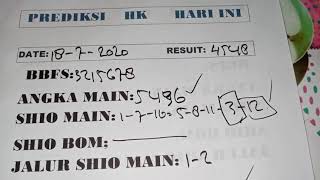 PREDIKSI HK HARI INI
DATE: 18-7-2020 RESUIT: 4548
BBFS: 3215678
ANGKA MAIN: 5486
SHIO MAIN: 1-7-10-5-8-11-3-12
SHIO BOM:
JALUR SHIO MAIN: 1-2